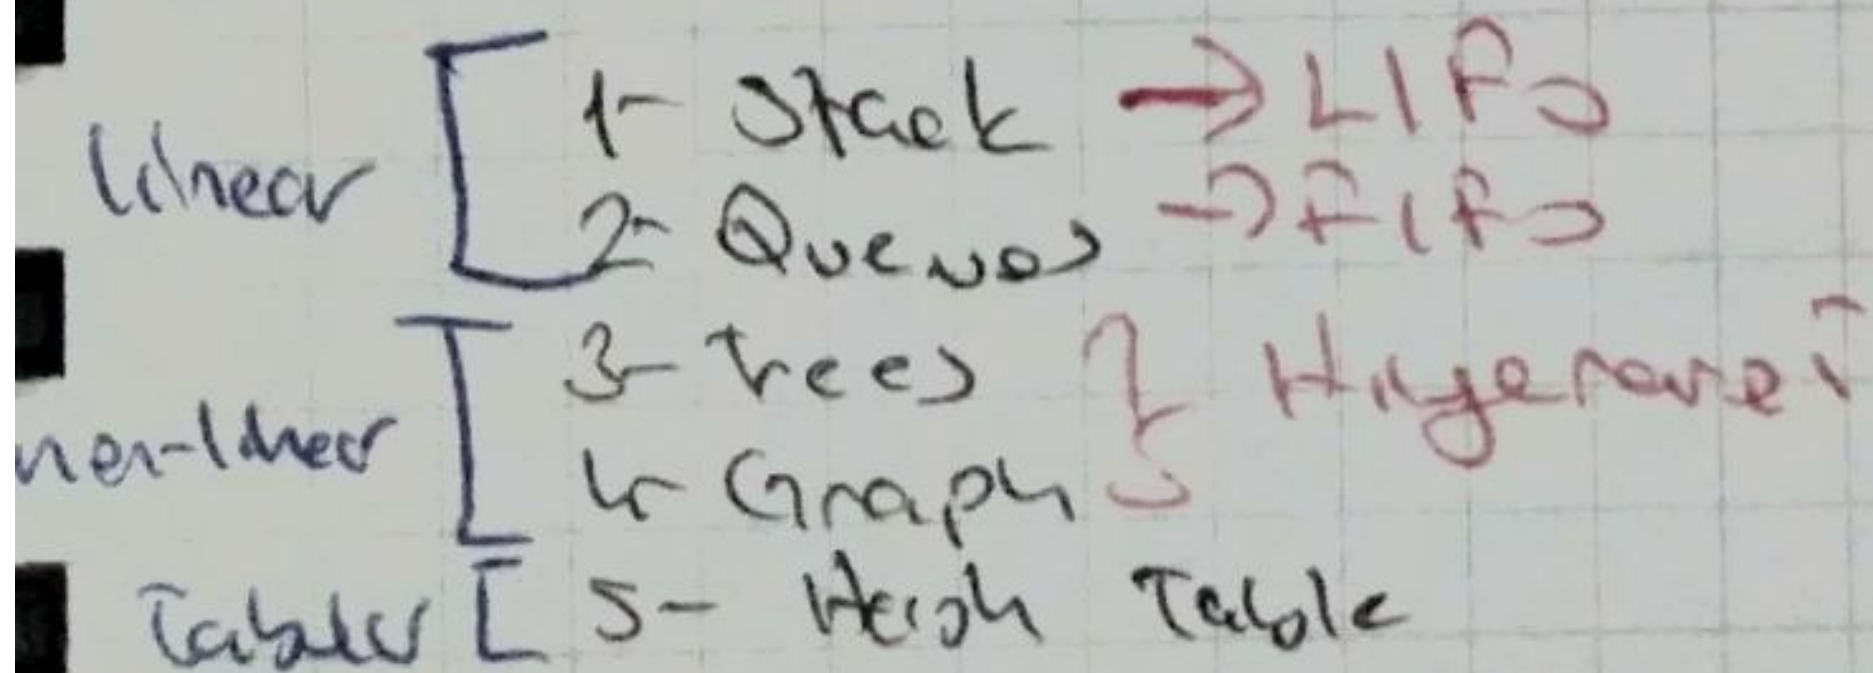 Linear [ 1- Stack → LIFO
2- Queues → FIFO
3- Trees
non-linear [ 4- Graph } Hiyerarşi
Tabular [ 5- Hash Table